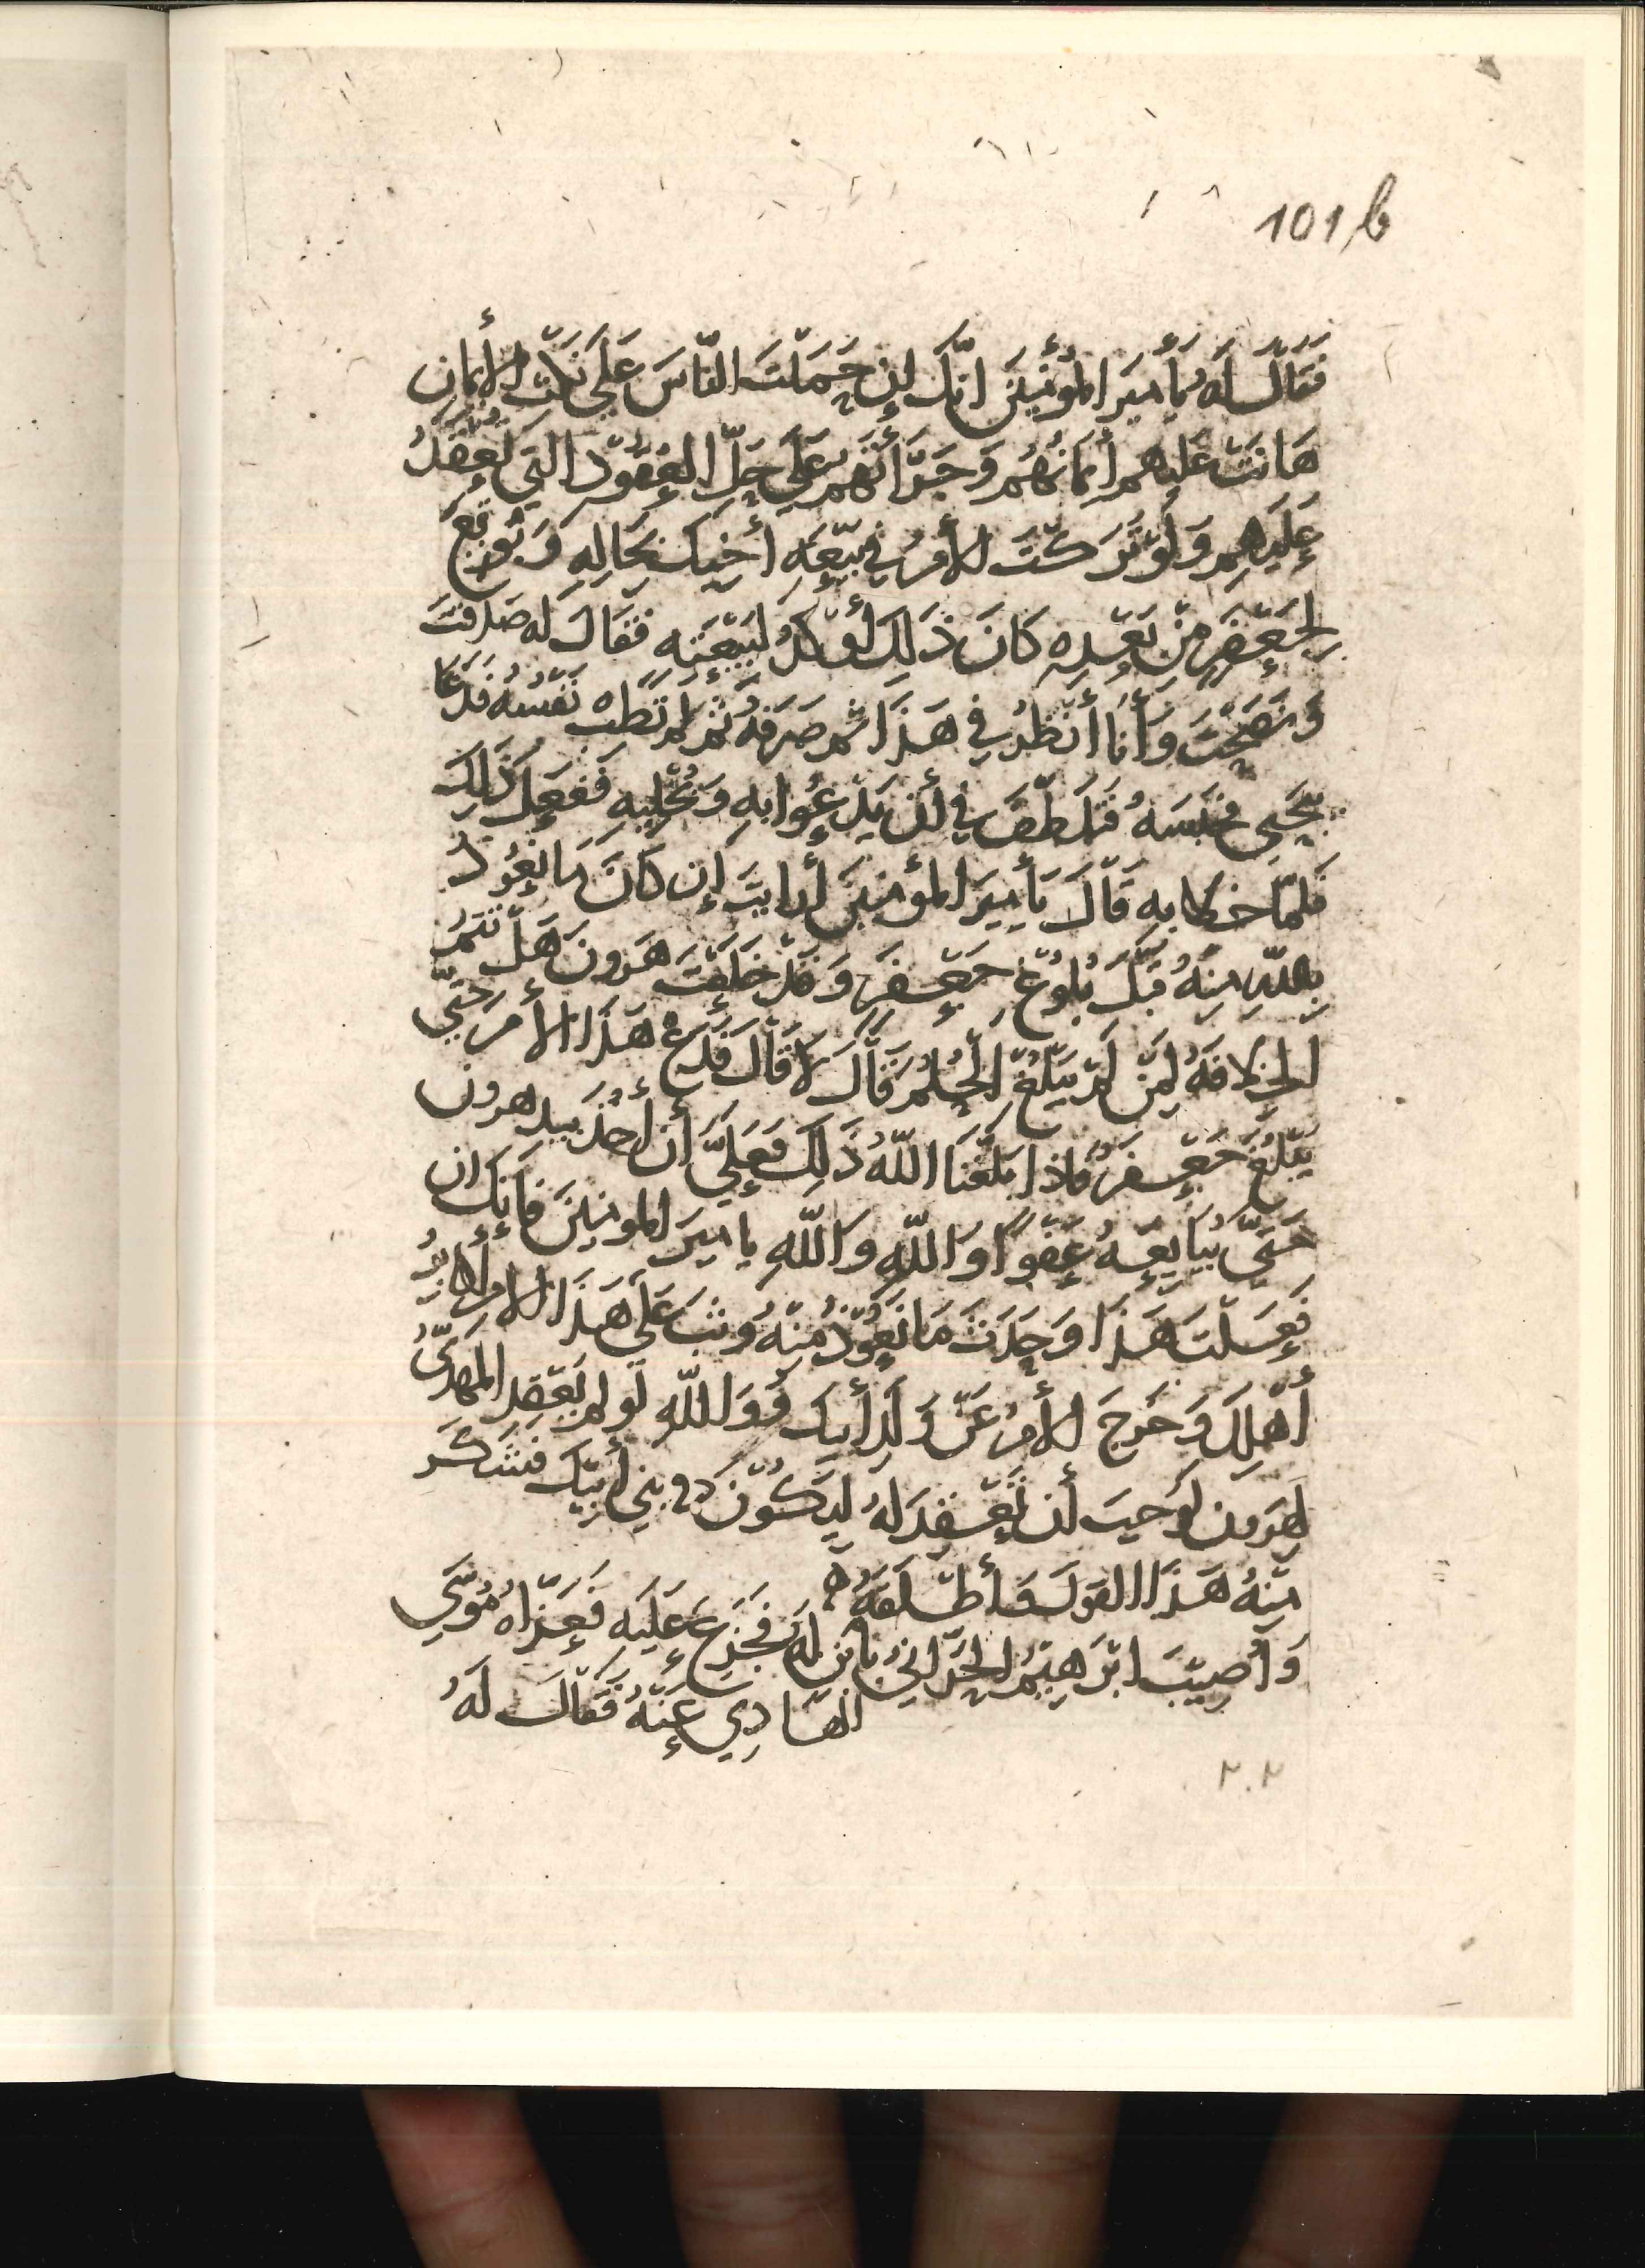 101b
فَقَالَ لَهُ يَأَمِيرَ الْمُؤْمِنِينَ انَّكَ إِن حَمَلْتَ النَّاسَ عَلَى نَكْثِ الأَيْمَانِ
هَانَتْ عَلَيهِمِ أَيمَانُهُم وَجَرَّاتَهُم عَلَى حَلِّ العُقُوْدِ التِي تُعْقَدُ
عَلَيْهِم وَلَوْ تَرَكْتَ الأَمْرَ في بَيْعَةِ أَخِيكَ بِحَالِهِ وَبُويِعَ
لِجَعْفَرٍ مِنْ بَعْدِهِ كَانَ ذَلِكَ أَوْكَدُ لِبَيْعَتِهِ فَقَالَ لَهُ صَدَقْتَ
وَنَصَحْتَ وَأَنَا أَنْظُرُ فِي هَذَا ثُم صَرَفَهُ ثُمَّ لَمْ تَطِبْ نَفْسُهُ فَدَعَا
بِيَحْيَى فَحَبَسَهُ فَتَلَطَّفَ فِي أَن يَدْعُوا بِهِ وَيُخْلِيهِ فَفَعَل ذَلِكَ
فَلَمَّا خَلا بِهِ قَالَ يَأَمِيرَ المُؤْمِنِينَ أَرَايتَ إِن كَانَ مَا نَعُوْذُ
بِاللهِ مِنْهُ قَبْلَ بُلُوْغِ جَعْفَرٍ وَقَدْ خَلَعْتَ هَرُونَ هَلْ تَتِمُّ
الخِلافَةُ لِمَنْ لَمْ يَبْلُغِ الحُلُمَ قَالَ لَا قَالَ فَدَعْ هَذَا الأَمْرَ حَتَّى
يَبْلُغَ جَعْفَرٌ فَإِذَا بَلَّغَنَا اللّهُ ذَلِكَ فَعَلَيَّ أَن أَخُذَ بِيَدِ هرون
حَتَّى يُبَايِعَهُ عَفْوًا وَاللّهِ وَاللّهِ يا امِيرَ المومِنينَ فَإِنَّكَ ان
فَعَلْتَ هَذَا وَحَدَثَ مَا نَعُوْذُ مِنْهُ وَثَبَ عَلَى هَذَا الامر أَكَابِرُ
أَهْلِكَ وَخَرجَ الأَمْرُ عَنْ وَلَدِ أَبِيكَ فَوَاللّهِ لَو لم يَعْقِد المَهْدِيُّ
لِهَرونَ لَوَجَبَ أَن تَعْقِدَ لَهُ لِيَكُوْنَ في بَنِي أَبِيْكَ فَشَكَرَ
مِنْهُ هَذَا القَولَ فَأَطْلَقَهُ ه
وَأُصِيْبَ ابْرَهِيْمُ الحَرَّانِيُّ بابْنٍ لَهُ فَجَزِعَ عَلَيهِ فَعَزَّاهُ مُوسَى
الهَادِي عَنْهُ فَقَالَ لَهُ
٢٠٢